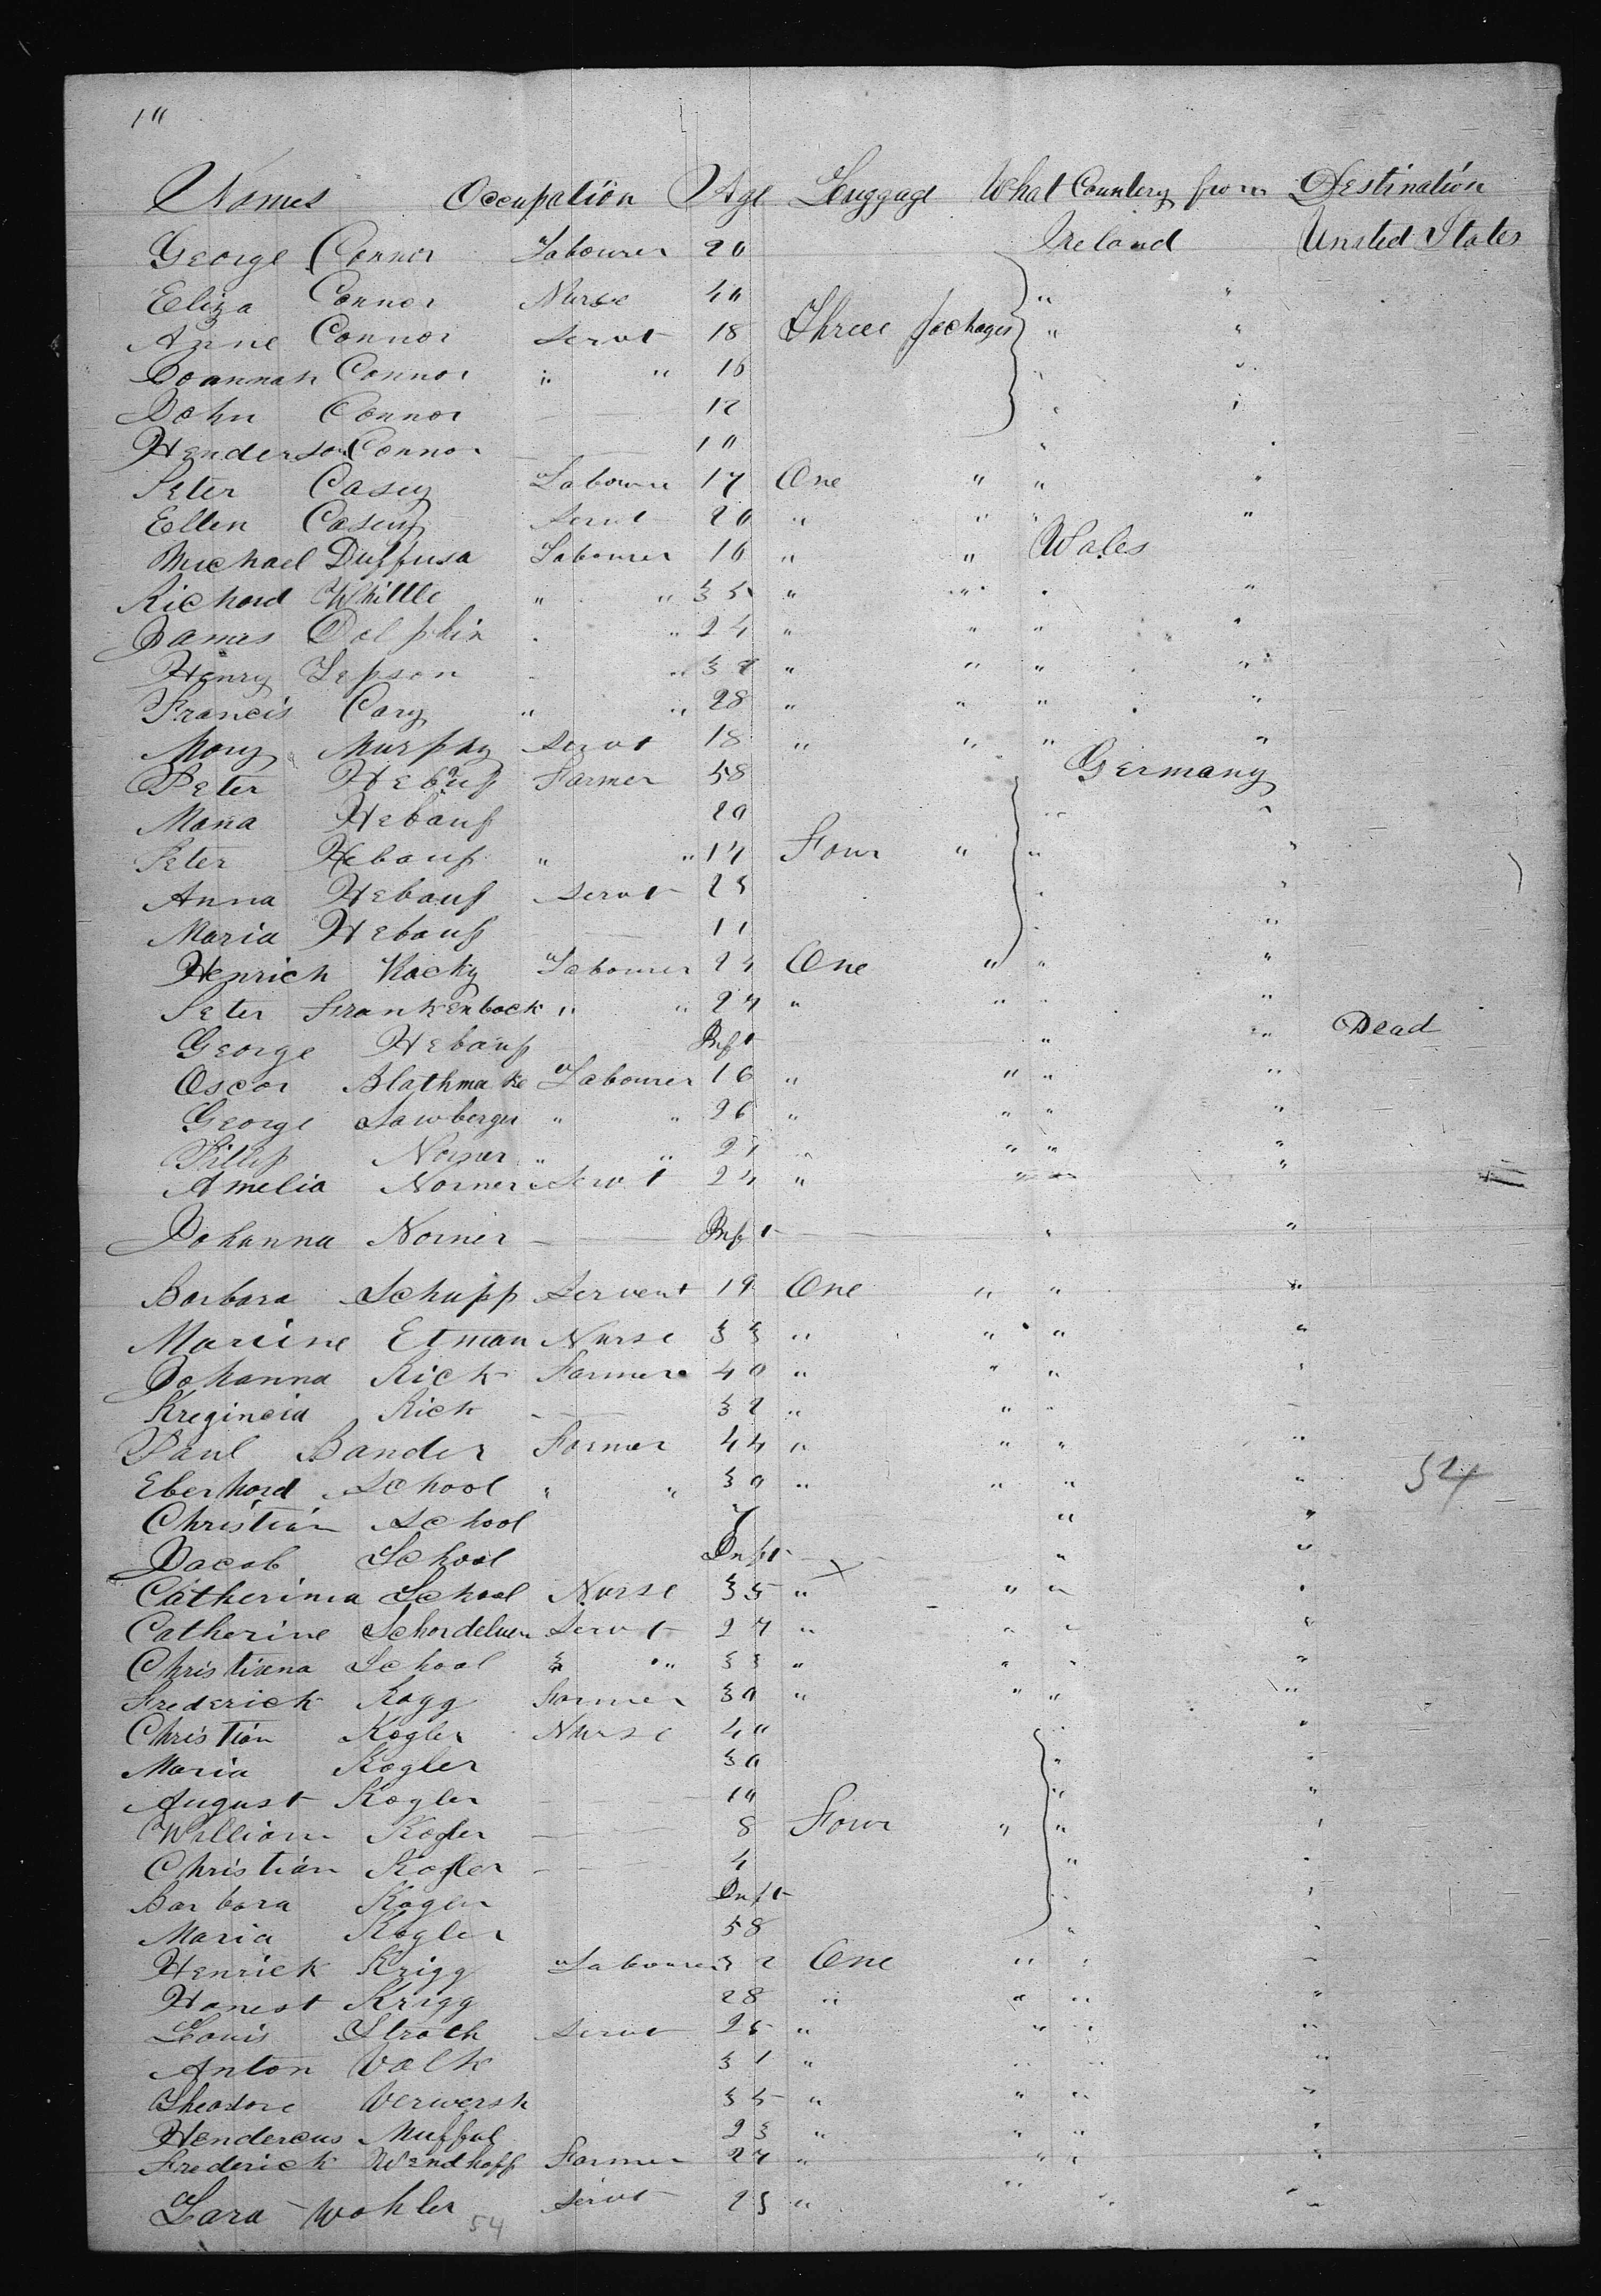 10
Names Occupation Age Luggage What Countery from Destination
George Connor Labourer 20 Ireland United States
Eliza Connor Nurse 40 " "
Anne Connor Servt 18 Three packages " "
Joannah Connor " " 16 " "
John Connor 12 " "
Henderson Connor 10 " "
Peter Casey Laboure 17 One " " "
Ellen Casey Servt 20 " " " "
Michael Duffusa Labourer 16 " " Wales
Richard Whittle " " 35 " " " "
James Dolphin " " 24 " " " "
Henry Jepson " " 32 " " " "
Francis Cary " " 28 " " " "
Mary Murphy Servt 18 " " " "
Peter Hebauf Farmer 58 Germany
Mana Hebauf 20 " "
Peter Hebauf " " 14 Four " " "
Anna Hebauf Servt 23 " "
Maria Hebauf 11 " "
Henrich Kacky Labourer 24 One " " "
Peter Frankenback " " 24 " " " "
George Hebauf Inft " " Dead
Oscar Blathmake Labourer 16 " " " "
George Lawberger " " 26 " " " "
Pillip Norner " " 27 " " " "
Amelia Norner Servt 24 " " " "
Johanna Norner Inft " "
Barbara Schupp Servent 19 One " " "
Marcine Etman Nurse 33 " " " "
Johanna Rick Farmer 40 " " "
Kregincia Rick 32 " " "
Paul Bander Farmer 44 " " " "
Eberhard School " " 30 " " " " 54
Christian School 7 " "
Jacob School Inft " "
Catherinia School Nurse 35 " " " "
Catherine Schordelwen Servt 27 " " " "
Christiana School " " 33 " " " "
Frederick Kagg Farmer 30 " " " "
Christian Kogler Nurse 40 " "
Maria Kogler 30 " "
August Kogler 10 " "
William Kogler 8 Four " " "
Christian Kogler 4 " "
Barbara Kogler Inft " "
Maria Kogler 58 " "
Henrick Krigg Labourer 32 One " " "
Hanest Krigg 28 " " " "
Louis Stroth Servt 25 " " " "
Anton Valk 31 " " " "
Theodore Verwersh 35 " " " "
Hendereus Muffal 23 " " " "
Frederick Wendhoff Farmer 27 " " " "
Lara Wohler Servt 23 " " " "
54